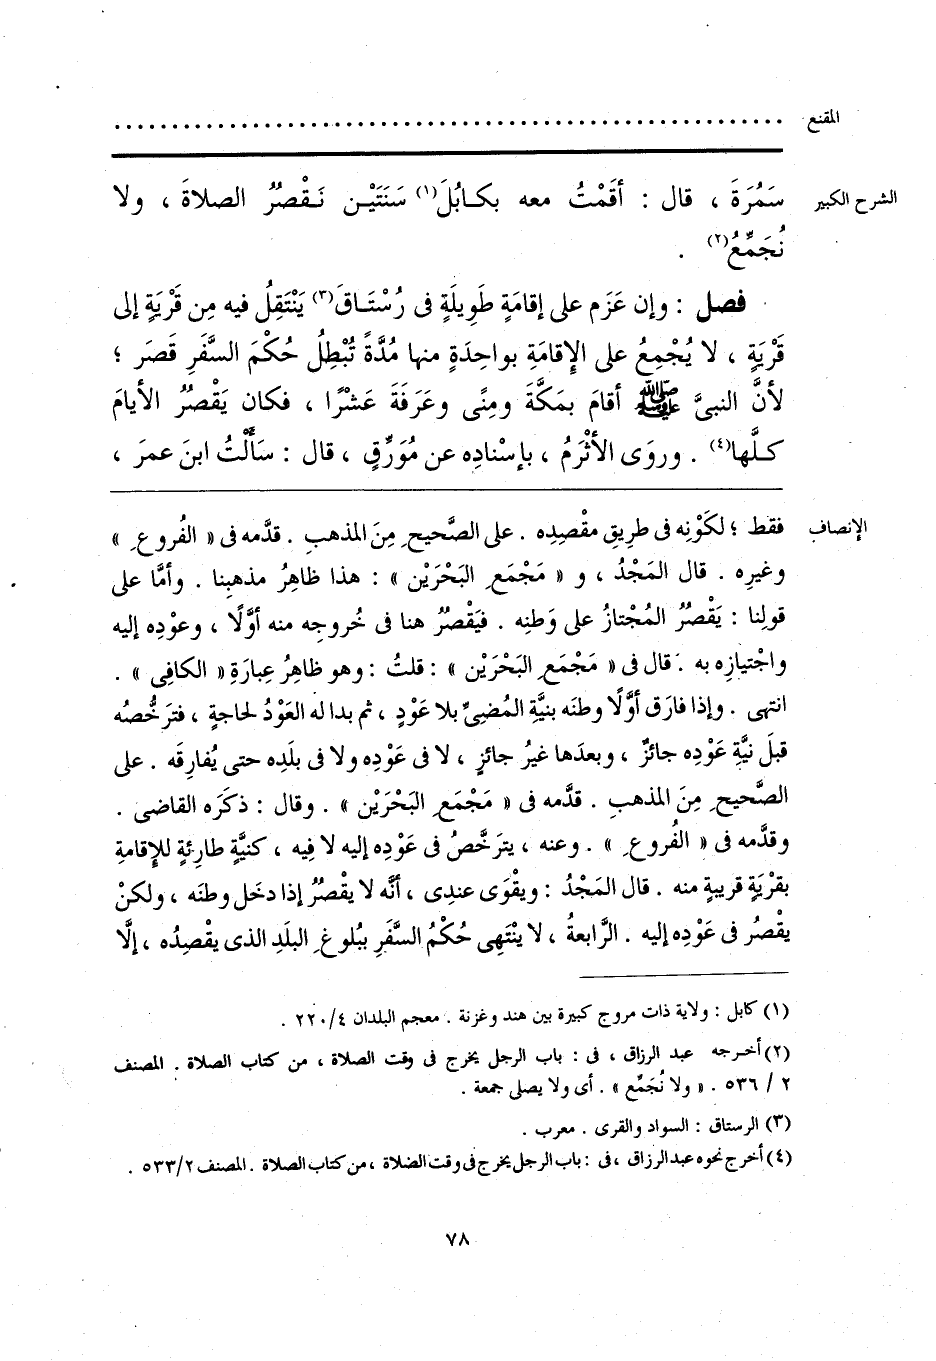 المقنع ............................................................
الشرح الكبير سَمُرَةَ ، قال : أقَمْتُ معه بكابُلَ(١) سَنَتَيْن نَقْصُرُ الصلاةَ ، ولا
نُجَمِّعُ(٢) .
فصل : وإن عَزَم على إقامَةٍ طَوِيلَةٍ فى رُسْتَاقَ(٣) يَنْتَقِلُ فيه مِن قَرْيَةٍ إلى
قَرْيَةٍ ، لا يُجْمِعُ على الإِقامَةِ بواحِدَةٍ منها مُدَّةً تُبْطِلُ حُكْمَ السَّفَرِ قَصَر ؛
لأنَّ النبىَّ ﷺ أقامَ بمَكَّةَ ومِنًى وعَرَفَةَ عَشْرًا ، فكان يَقْصُرُ الأيامَ
كلَّها(٤) . وروَى الأثْرَمُ ، بإسْنادِه عن مُوَرِّقٍ ، قال : سَألْتُ ابنَ عمرَ ،
الإنصاف فقط ؛ لكَوْنِه فى طريقِ مقْصِدِه . على الصَّحيحِ مِنَ المذهبِ . قدَّمه فى « الفُروعِ »
وغيرِه . قال المَجْدُ ، و « مَجْمَعِ البَحْرَيْن » : هذا ظاهِرُ مذهبِنا . وأمَّا على
قولِنا : يَقْصُرُ المُجْتازُ على وَطنِه . فيَقْصُرُ هنا فى خُروجِه منه أوَّلًا ، وعوْدِه إليه
واجْتيازِه به . قال فى « مَجْمَعِ البَحْرَيْن » : قلتُ : وهو ظاهِرُ عِبارَةِ « الكافِى » .
انتهى . وإذا فارَق أوَّلًا وطنَه بنيَّةِ المُضِىِّ بلا عَوْدٍ ، ثم بدا له العَوْدُ لحاجةٍ ، فترَخُّصُه
قبلَ نيَّةِ عَوْدِه جائزٌ ، وبعدَها غيرُ جائزٍ ، لا فى عَوْدِه ولا فى بلَدِه حتى يُفارِقَه . على
الصَّحيحِ مِنَ المذهبِ . قدَّمه فى « مَجْمَعِ البَحْرَيْن » . وقال : ذكَرَه القاضى .
وقدَّمه فى « الفُروعِ » . وعنه ، يترَخَّصُ فى عَوْدِه إليه لا فيه ، كنيَّةٍ طارِئةٍ للإِقامةِ
بقرْيَةٍ قريبةٍ منه . قال المَجْدُ : ويقْوَى عندِى ، أنَّه لا يقْصُرُ إذا دخَل وطنَه ، ولكنْ
يقْصُرُ فى عَوْدِه إليه . الرَّابعةُ ، لا ينْتَهِى حُكْمُ السَّفَرِ ببُلوغِ البلَدِ الذى يقْصِدُه ، إلَّا
(١) كابل : ولاية ذات مروج كبيرة بين هند وغزنة . معجم البلدان ٤/ ٢٢٠ .
(٢) أخرجه عبد الرزاق ، فى : باب الرجل يخرج فى وقت الصلاة ، من كتاب الصلاة . المصنف
٢ / ٥٣٦ . « ولا نُجَمِّع » . أى ولا يصلى جمعة .
(٣) الرستاق : السواد والقرى . معرب .
(٤) أخرج نحوه عبد الرزاق ، فى : باب الرجل يخرج فى وقت الصلاة ، من كتاب الصلاة . المصنف ٢/ ٥٣٣ .
٧٨